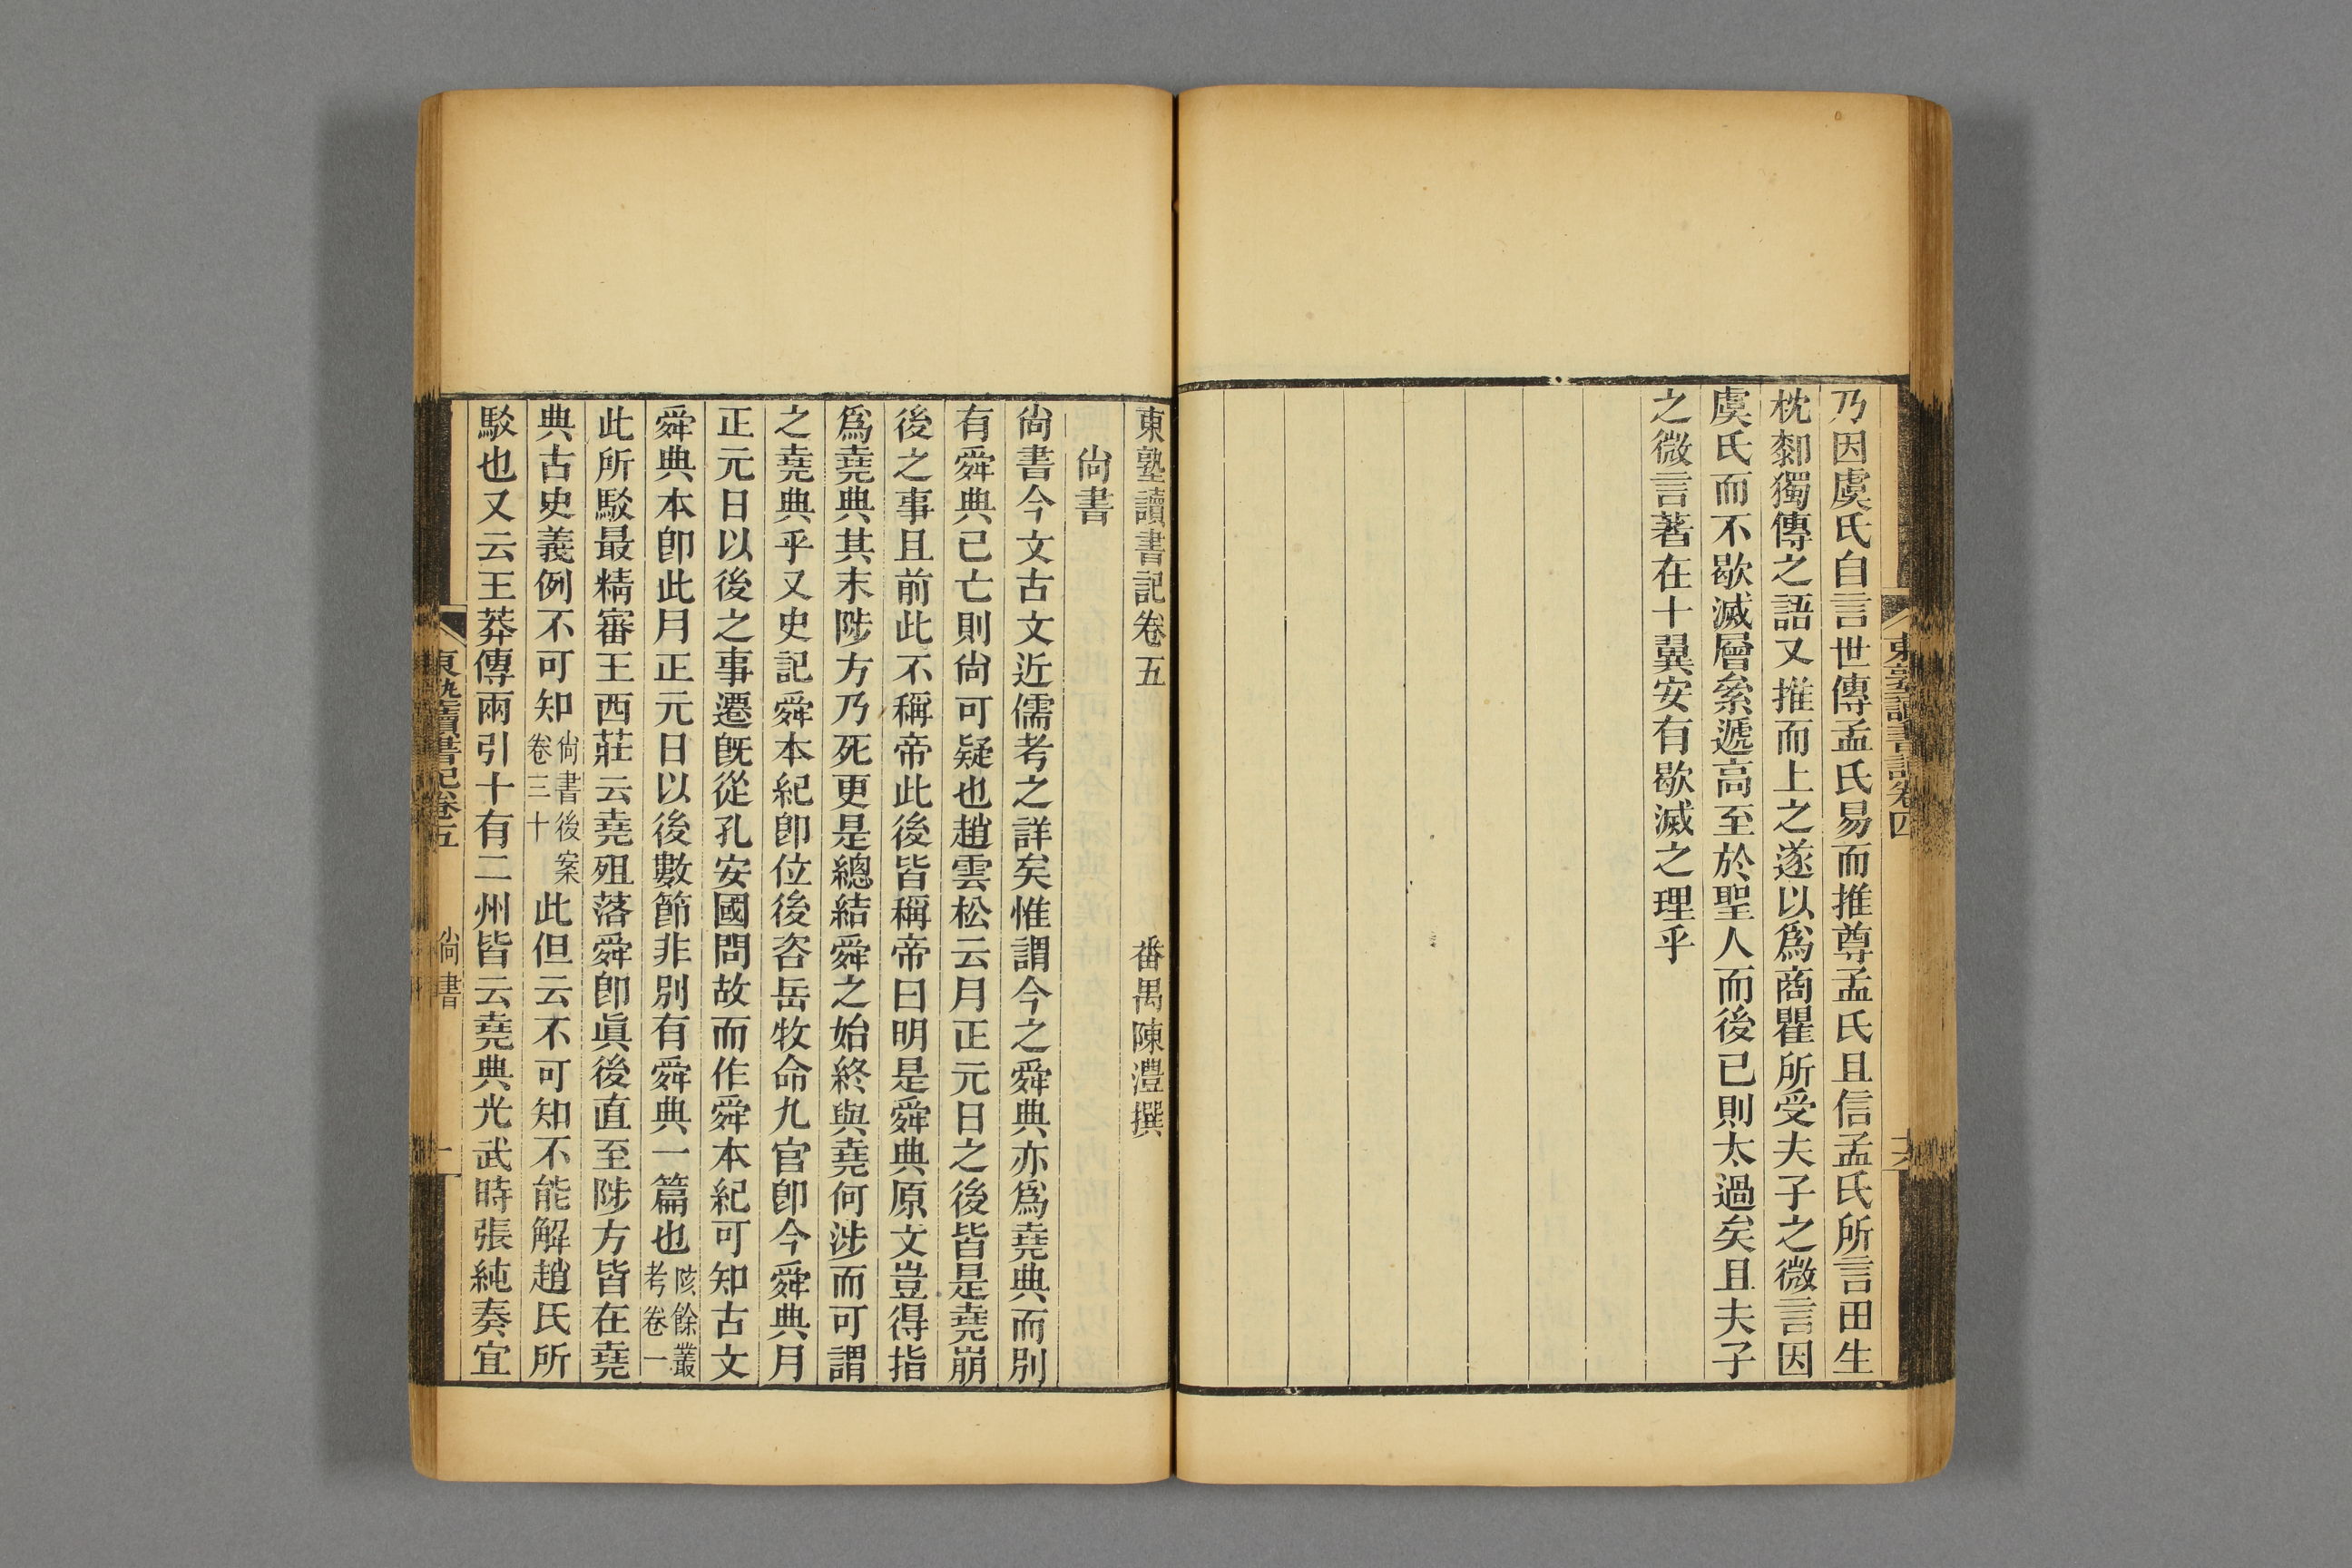 東塾讀書記卷四
六
乃因虞氏自言世傳孟氏易而推尊孟氏且信孟氏所言田生
枕厀獨傳之語又推而上之遂以爲商瞿所受夫子之微言因
虞氏而不歇滅層絫遞高至於聖人而後已則太過矣且夫子
之微言著在十翼安有歇滅之理乎
東塾讀書記卷五
番禺陳澧撰
尙書
尙書今文古文近儒考之詳矣惟謂今之舜典亦爲堯典而別
有舜典已亡則尙可疑也趙雲松云月正元日之後皆是堯崩
後之事且前此不稱帝此後皆稱帝曰明是舜典原文豈得指
爲堯典其末陟方乃死更是總結舜之始終與堯何涉而可謂
之堯典乎又史記舜本紀卽位後咨岳牧命九官卽今舜典月
正元日以後之事遷旣從孔安國問故而作舜本紀可知古文
舜典本卽此月正元日以後數節非別有舜典一篇也陔餘叢考卷一
此所駁最精審王西莊云堯殂落舜卽眞後直至陟方皆在堯
典古史義例不可知尙書後案卷三十此但云不可知不能解趙氏所
駁也又云王莽傳兩引十有二州皆云堯典光武時張純奏宜
東塾讀書記卷五
尙書
一